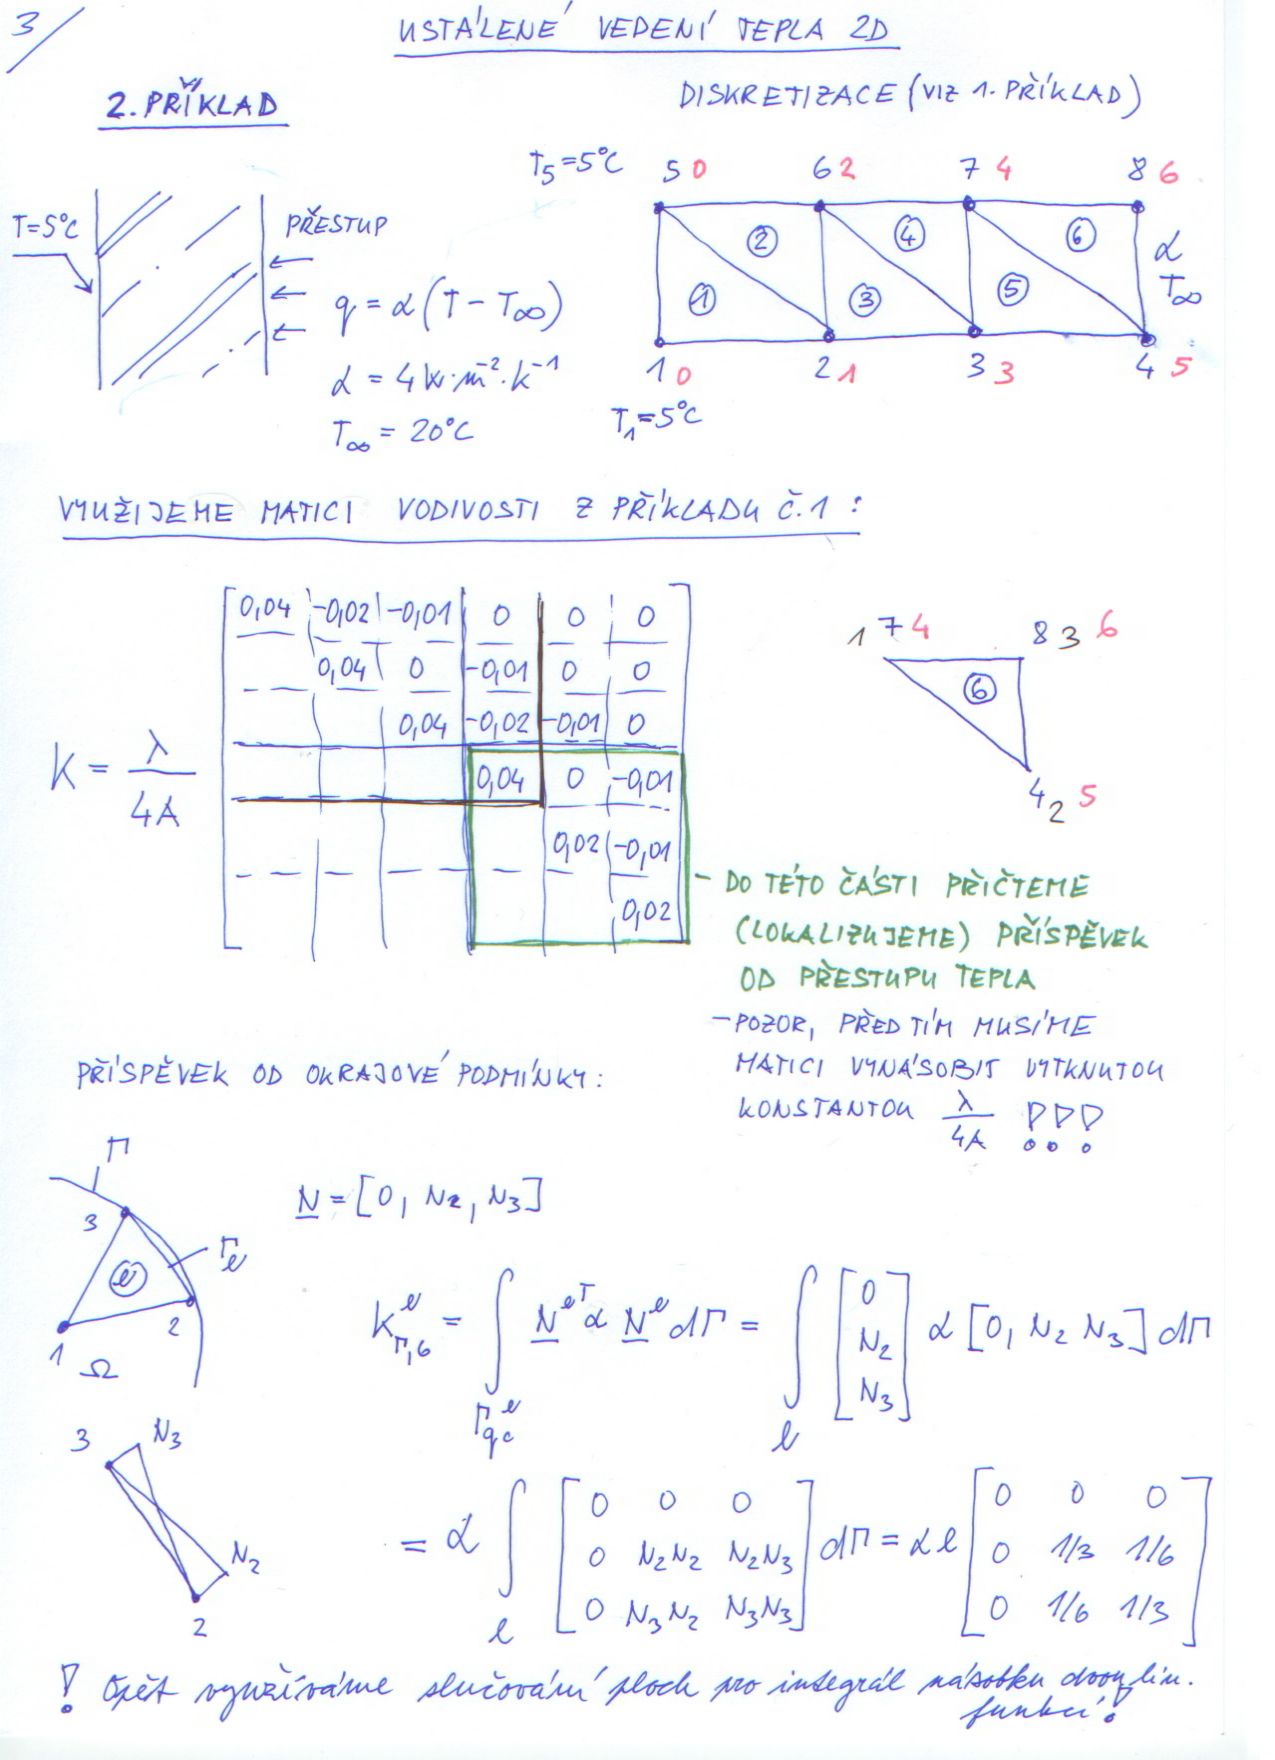 3/
USTÁLENÉ VEDENÍ TEPLA 2D
2. PŘÍKLAD
DISKRETIZACE (VIZ 1. PŘÍKLAD)
T=5°C
PŘESTUP
q = α (T - T∞)
α = 4 W·m⁻²·K⁻¹
T∞ = 20°C
T₅=5°C
5 0 6 2 7 4 8 6
② ④ ⑥
α
T∞
① ③ ⑤
1 0 2 1 3 3 4 5
T₁=5°C
VYUŽIJEME MATICI VODIVOSTI Z PŘÍKLADU Č.1 :
K = λ/4A
0,04 -0,02 -0,01 0 0 0
0,04 0 -0,01 0 0
0,04 -0,02 -0,01 0
0,04 0 -0,01
0,02 -0,01
0,02
1 7 4 8 3 6
⑥
4 2 5
- DO TÉTO ČÁSTI PŘIČTEME
(LOKALIZUJEME) PŘÍSPĚVEK
OD PŘESTUPU TEPLA
- POZOR, PŘED TÍM MUSÍME
MATICI VYNÁSOBIT VYTKNUTOU
KONSTANTOU λ/4A !!!
PŘÍSPĚVEK OD OKRAJOVÉ PODMÍNKY:
Γ
3
Γe
e
2
1 Ω
N = [0, N₂, N₃]
K^e_Γ,6 = ∫_Γqc^e N^eT α N^e dΓ = ∫_l [0 N₂ N₃] α [0, N₂ N₃] dΓ
3 N₃
N₂
2
= α ∫_l [0 0 0
0 N₂N₂ N₂N₃
0 N₃N₂ N₃N₃] dΓ = α l [0 0 0
0 1/3 1/6
0 1/6 1/3]
! Opět využíváme slučování ploch pro integrál násobku dvou lin.
funkcí!